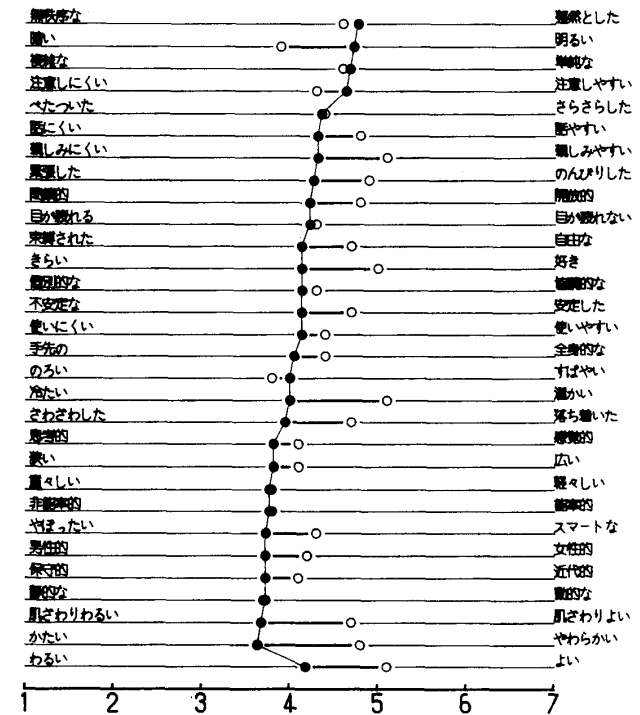 無秩序な 整然とした
暗い 明るい
複雑な 単純な
注意しにくい 注意しやすい
べたついた さらさらした
話にくい 話やすい
親しみにくい 親しみやすい
緊張した のんびりした
閉鎖的 開放的
目が疲れる 目が疲れない
束縛された 自由な
きらい 好き
個別的な 協調的な
不安定な 安定した
使いにくい 使いやすい
手先の 全身的な
のろい すばやい
冷たい 温かい
さわさわした 落ち着いた
思考的 感覚的
狭い 広い
重々しい 軽々しい
非能率的 能率的
やぼったい スマートな
男性的 女性的
保守的 近代的
静的な 動的な
肌ざわりわるい 肌ざわりよい
かたい やわらかい
わるい よい
1 2 3 4 5 6 7